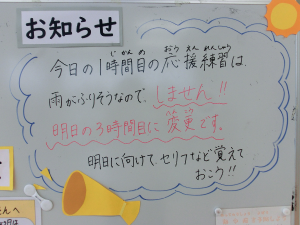 お知らせ
今日の1時間目の応援練習は、
雨がふりそうなので、しません!!
明日の3時間目に変更です。
明日に向けて、セリフなど覚えて
おこう!!